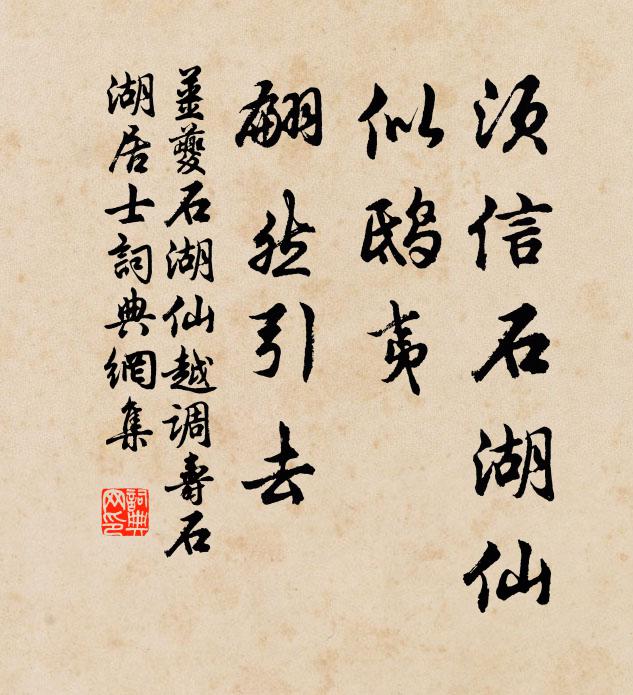 须信石湖仙
似鸱夷
翩然引去
姜夔石湖仙越调寿石
湖居士詞典網集
詞典网印